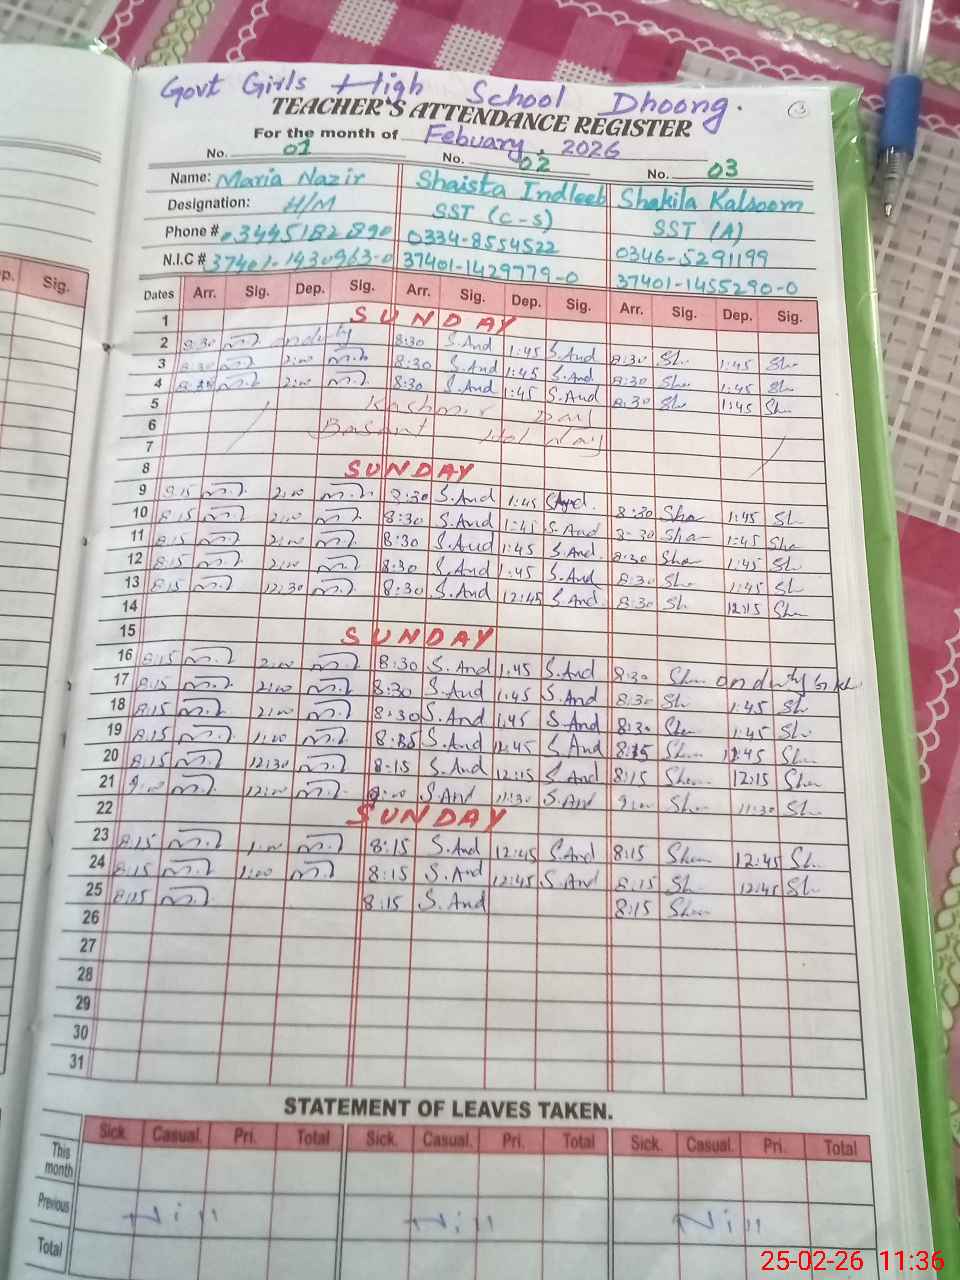 Govt Girls High School Dhoong.
TEACHER'S ATTENDANCE REGISTER
For the month of Febuary, 2026
No. 01 No. 02 No. 03
Name: Maria Nazir Shaista Indleeb Shakila Kalsoom
Designation: H/M SST (C-S) SST (A)
Phone # 03445182890 0334-8554522 0346-5291199
N.I.C # 37401-1430963-0 37401-1429779-0 37401-1455290-0
p. Sig.
Dates Arr. Sig. Dep. Sig. Arr. Sig. Dep. Sig. Arr. Sig. Dep. Sig.
1 SUNDAY
2 8:30 onduty 8:30 S.And 1:45 S.And 8:30 Sh 1:45 Sh
3 8:30 2:00 8:30 S.And 1:45 S.And 8:30 Sha 1:45 Sh
4 8:30 2:00 8:30 S.And 1:45 S.And 8:30 Sh 1:45 Sh
5 Kashmir Day
6 Basant Holiday
7
8 SUNDAY
9 9:15 2:00 8:30 S.And 1:45 S.And 8:30 Sha 1:45 Sh
10 8:15 2:00 8:30 S.And 1:45 S.And 8:30 Sha 1:45 Sha
11 8:15 2:00 8:30 S.And 1:45 S.And 8:30 Sha 1:45 Sh
12 8:15 2:00 8:30 S.And 1:45 S.And 8:30 Sh 1:45 Sh
13 8:15 12:30 8:30 S.And 12:45 S.And 8:30 Sh 12:15 Sha
14
15 SUNDAY
16 8:15 2:00 8:30 S.And 1:45 S.And 8:30 Sha on duty
17 8:15 2:00 8:30 S.And 1:45 S.And 8:30 Sh 1:45 Sh
18 8:15 2:00 8:30 S.And 1:45 S.And 8:30 Sha 1:45 Sh
19 8:15 1:00 8:15 S.And 12:45 S.And 8:15 Sha 12:45 Sh
20 8:15 12:30 8:15 S.And 12:15 S.And 8:15 Sha 12:15 Sha
21 9:00 12:00 9:00 S.And 11:30 S.And 9:00 Sha 11:30 Sh
22 SUNDAY
23 8:15 1:00 8:15 S.And 12:45 S.And 8:15 Sha 12:45 Sh
24 8:15 1:00 8:15 S.And 12:45 S.And 8:15 Sh 12:45 Sh
25 8:15 8:15 S.And 8:15 Sha
26
27
28
29
30
31
STATEMENT OF LEAVES TAKEN.
Sick. Casual. Pri. Total Sick. Casual. Pri. Total Sick. Casual. Pri. Total
This month
Previous Nill Nill Nill
Total
25-02-26 11:36